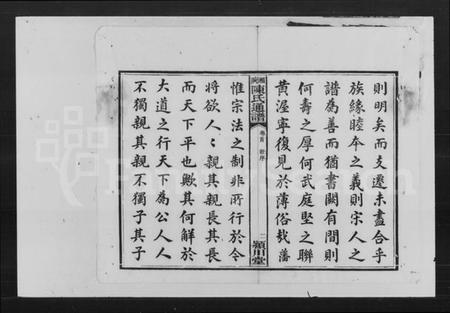 則明矣而支遷未盡合乎
族緣睦本之義則宗人之
譜爲善而猶書闕有間則
何壽之厚何武庭堅之聯
黃渥寧復見於薄俗哉藩
陳氏通譜
卷首
二
潁川堂
惟宗法之制非所行於今
將欲人人親其親長其長
而天下平也歟其何解於
大道之行天下爲公人人
不獨親其親不獨子其子